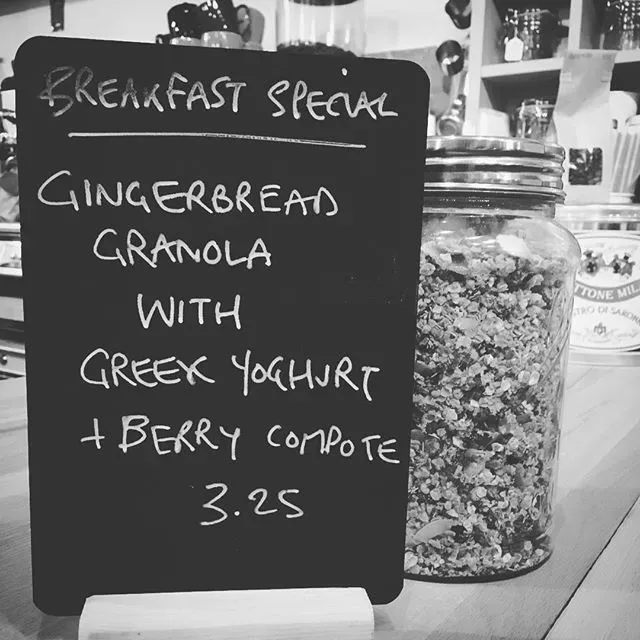 BREAKFAST SPECIAL
GINGERBREAD
GRANOLA
WITH
GREEK YOGHURT
+ BERRY COMPOTE
3.25
TTONE MIL
TRO DI SARON